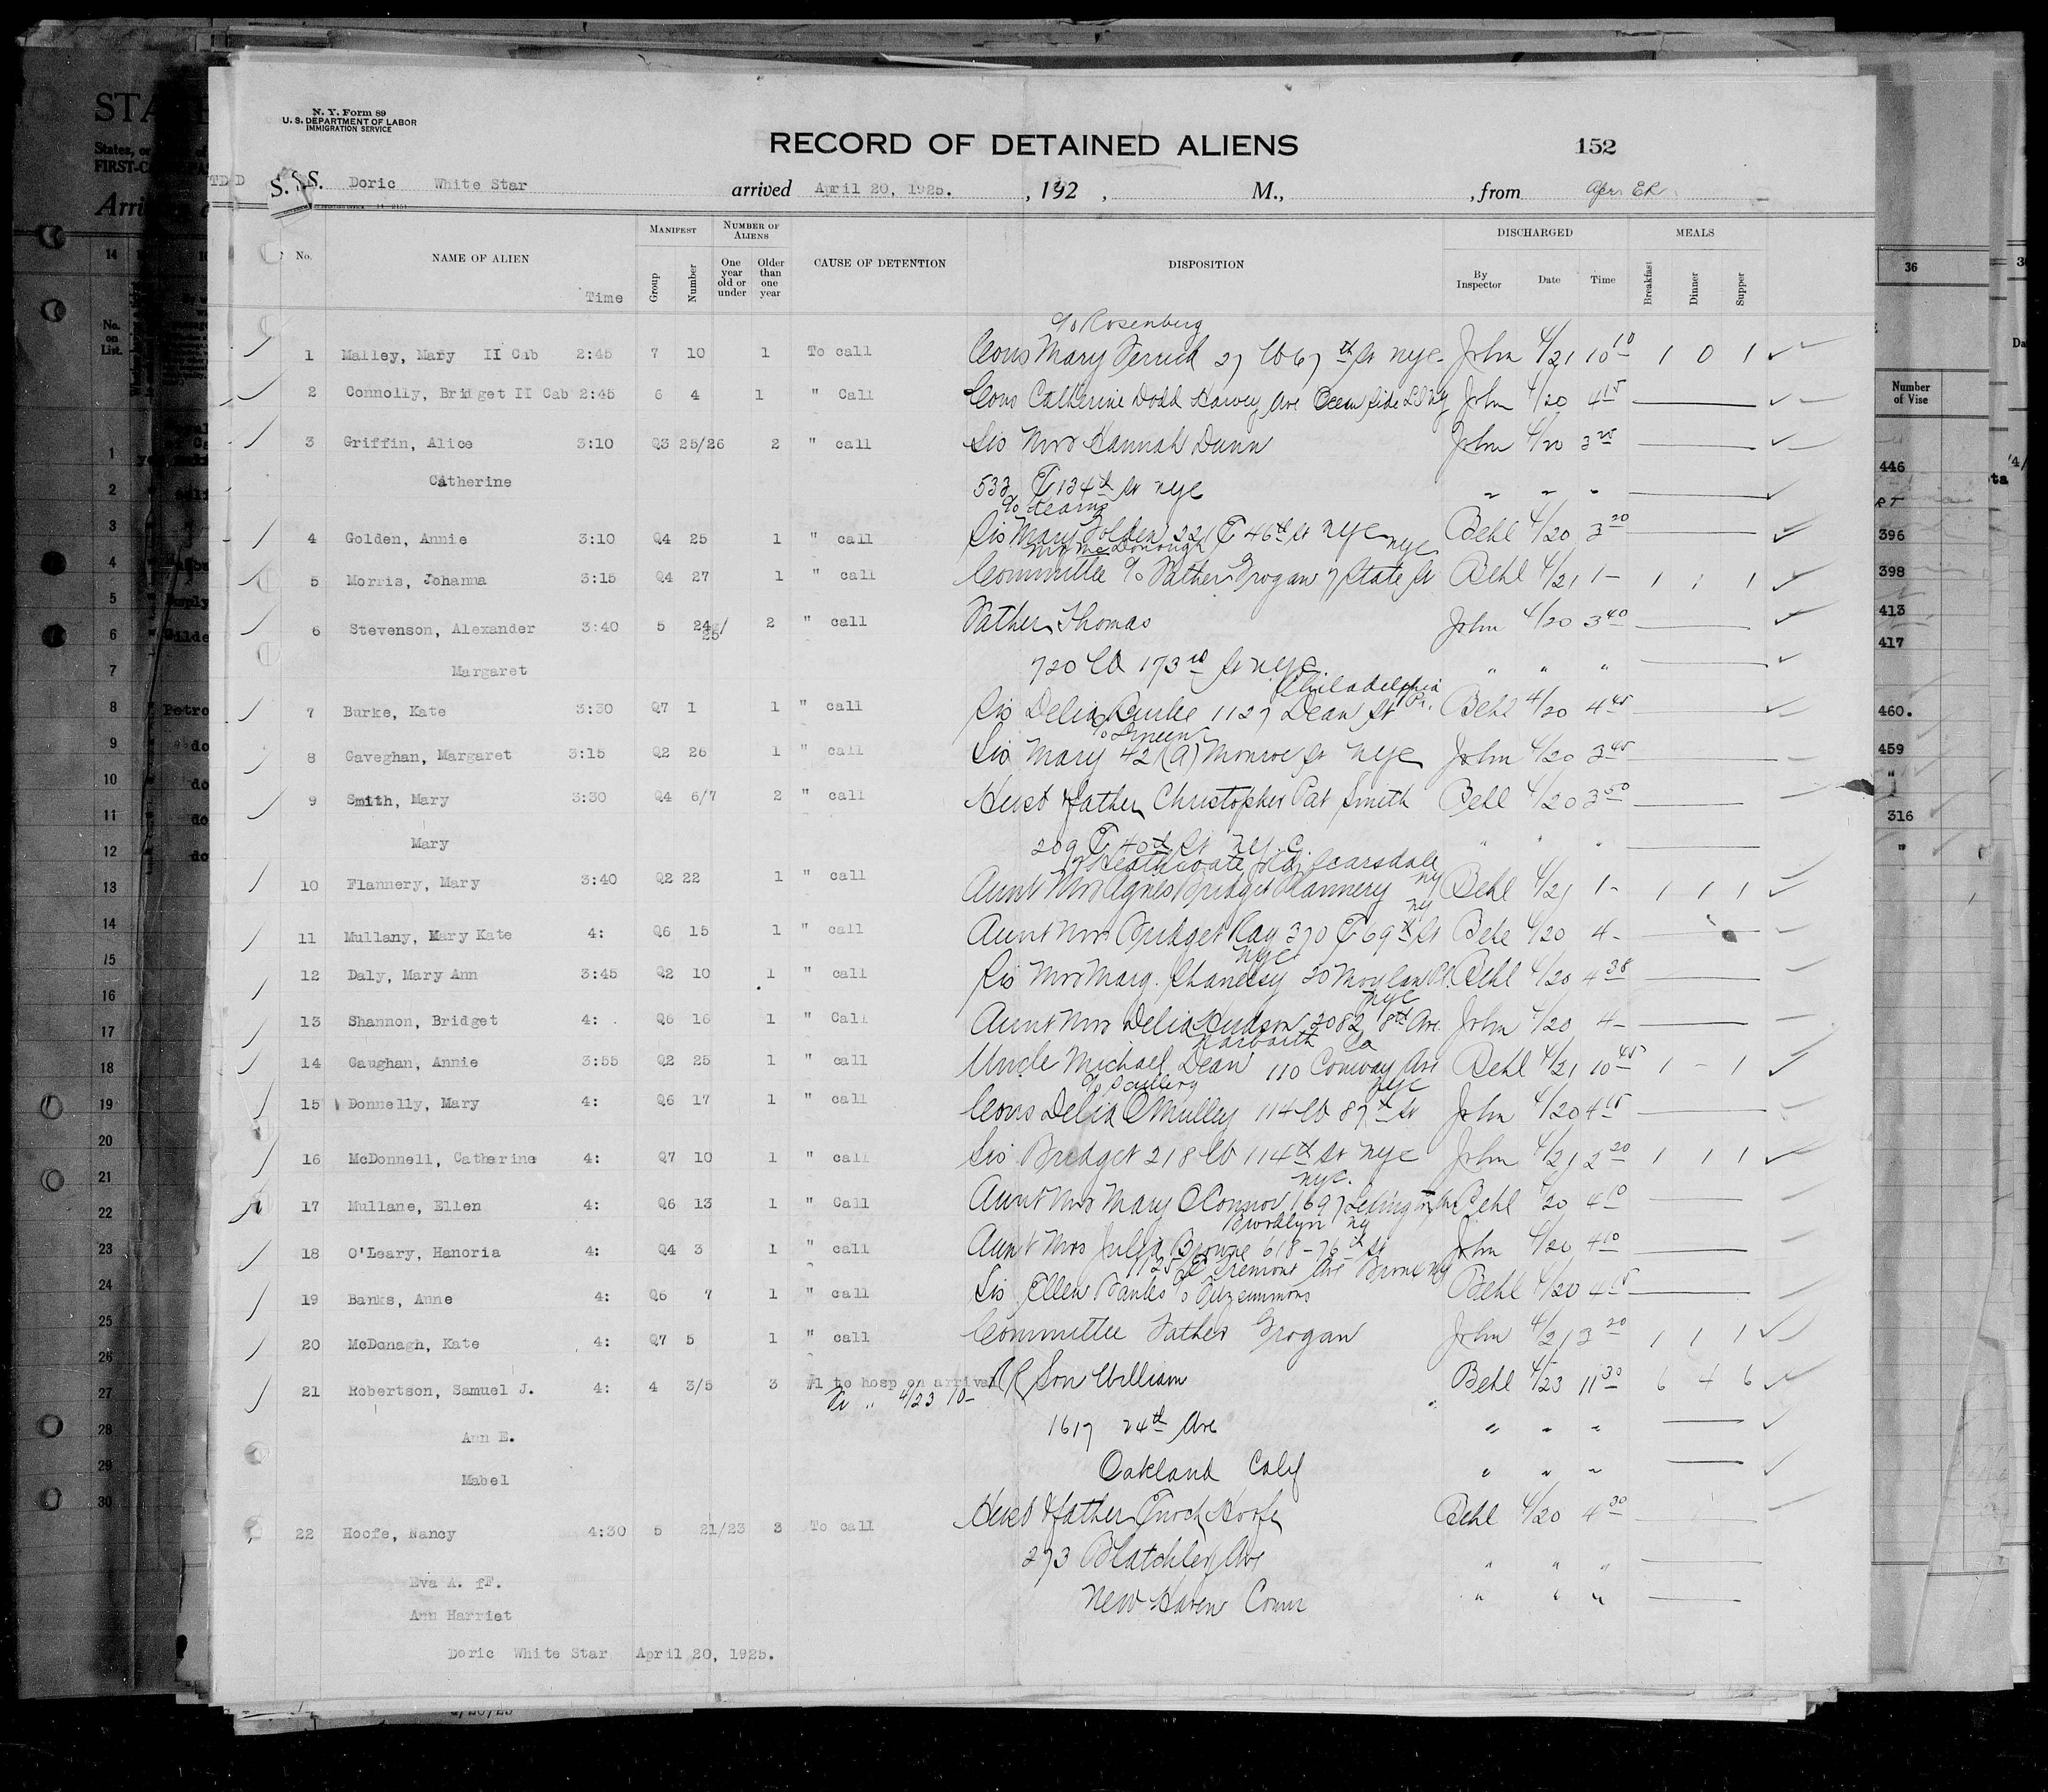 N. Y. Form 89
U. S. DEPARTMENT OF LABOR
IMMIGRATION SERVICE
RECORD OF DETAINED ALIENS 152
S. S. Doric White Star arrived April 20, 1925. , 192 , M., , from
No. NAME OF ALIEN Time MANIFEST Group Number NUMBER OF ALIENS One year old or under Older than one year CAUSE OF DETENTION DISPOSITION DISCHARGED By Inspector Date Time MEALS Breakfast Dinner Supper
c/o Rosenberg
1 Malley, Mary II Cab 2:45 7 10 1 To call Cous Mary 27 W 67th St NYC John 4/21 10 10 1 0 1
2 Connolly, Bridget II Cab 2:45 6 4 1 " Call Cous Catherine Dodd Harvey Ave Ocean Side LI NY John 4/20 4 15
3 Griffin, Alice 3:10 Q3 25/26 2 " call Sis Mrs Hannah Dunn John 4/20 3 25
Catherine 533 E 134th St NYC " " "
c/o Kearns
4 Golden, Annie 3:10 Q4 25 1 " call Sis Mary Golden 221 E 46th St NYC Behl 4/20 3 20
Mr McDonough NYC
5 Morris, Johanna 3:15 Q4 27 1 " call Committee c/o Father Grogan 7 State St Behl 4/21 1- 1 1 1
6 Stevenson, Alexander 3:40 5 24/25 2 " call Father Thomas John 4/20 3 40
Margaret 720 W 173rd St NYC " " "
Philadelphia Pa.
7 Burke, Kate 3:30 Q7 1 1 " call Sis Delia Burke 1127 Dean St Behl 4/20 4 45
c/o Green
8 Gaveghan, Margaret 3:15 Q2 26 1 " call Sis Mary 42 (a) Monroe St NYC John 4/20 3 45
9 Smith, Mary 3:30 Q4 6/7 2 " call Husb & father Christopher Pat Smith Behl 4/20 3 50
Mary 209 E 40th St NY.C. " " "
Heathcoate Rd, Scarsdale NY
10 Flannery, Mary 3:40 Q2 22 1 " call Aunt Mrs Agnes Bridget Flannery Behl 4/21 1- 1 1 1
NY
11 Mullany, Mary Kate 4: Q6 15 1 " call Aunt Mrs Bridget Ray 370 E 69th St Behl 4/20 4-
NYC
12 Daly, Mary Ann 3:45 Q2 10 1 " call Sis Mrs Marg. Shanessy 20 Moylan Pl. Behl 4/20 4 38
NYC
13 Shannon, Bridget 4: Q6 16 1 " Call Aunt Mrs Delia Hudson 2082 8th Ave. John 4/20 4-
Narbarth Pa
14 Gaughan, Annie 3:55 Q2 25 1 " call Uncle Michael Dean 110 Conway Ave Behl 4/21 10 45 1 - 1
NYC
15 Donnelly, Mary 4: Q6 17 1 " call Cous Delia OMulley 114 W 87th St John 4/20 4 15
16 McDonnell, Catherine 4: Q7 10 1 " call Sis Bridget 218 W 114th St NYC John 4/21 2 20 1 1 1
NYC.
17 Mullane, Ellen 4: Q6 13 1 " Call Aunt Mrs Mary OConnor 1697 Lexington Ave Behl 4/20 4 10
Brooklyn NY
18 O'Leary, Hanoria 4: Q4 3 1 " call Aunt Mrs Julia Browne 618-76th St John 4/20 4 10
1125 E Tremont Ave Bronx NY
19 Banks, Anne 4: Q6 7 1 " call Sis Ellen Banks c/o Fitzsimmons Behl 4/20 4 15
20 McDonagh, Kate 4: Q7 5 1 " call Committee Father Grogan John 4/21 3 20 1 1 1
21 Robertson, Samuel J. 4: 4 3/5 3 #1 to hosp on arrival RR Son William Behl 4/23 11 30 6 4 6
" 4/23 10-
Ann E. 1617 24th Ave " " "
Mabel Oakland Calif " " "
22 Hoofe, Nancy 4:30 5 21/23 3 To call Husb & father Enoch Hoofe Behl 4/20 4 30
Eva A. 273 Blatchley Ave " " "
Ann Harriet New Haven Conn " " "
Doric White Star April 20, 1925.
36
Number of Vise
446
396
398
413
417
460.
459
"
316
"
STA
States, or
FIRST-C
Arri
14
No. on List.
1
2
3
4
5
6
7
8
9
10
11
12
13
14
15
16
17
18
19
20
21
22
23
24
25
26
27
28
29
30
Petro
do
do
do
do